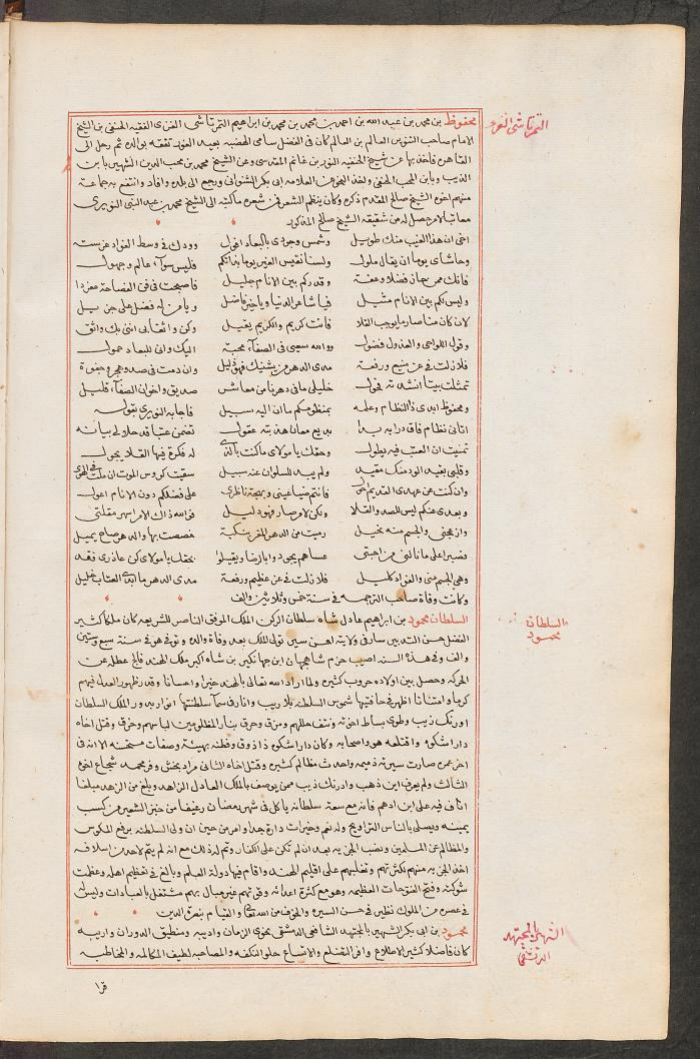 محفوظ بن محمد بن عبد الله بن احمد بن محمد بن محمد بن ابراهيم التمرتاشى الغزى الفقيه الحنفى بن الشيخ
التمرتاشى الغزى
الامام صاحب التنوير العالم بن العالم كان فى الفضل سامى الهضبه بعيد الغور تفقه بوالده ثم رحل الى
القاهره فاخذ بها عن شيخ الحنفيه النور بن غانم المقدسى وعن الشيخ محمد بن محب الدين الشهير بابن
الذيب وبابن المحب الحنفى واخذ النحو عن العلامه ابى بكر الشنوانى ورجع الى بلده وافاد وانتفع به جماعة
منهم اخوه الشيخ صالح المقدم ذكره وكان ينظم الشعر فمن شعره ما كتبه الى الشيخ محمد بن عبد النبى النويرى
معاتبا لامر حصل له من شقيقه الشيخ صالح المذكور
اخى ان هذا العتب منك طويل وشمس وجودى بالبعاد افول وودك فى وسط الفواد غرسته
وحاشاى يوما ان يقال ملول ولسنا نقيس الغير يوما بذاتكم فليس سوآء عالم وجهول
فانك ممن حاز فضلا وعفة وقدركم بين الانام جليل فاصبحت فى فن الفصاحة مفردا
وليس لكم بين الانام مثيل فيا شاعر الدنيا ويا خير فاضل ويا من له فضل على جزيل
لان كان منا صار ما يوجب القلا فانت كريم والكريم يقيل وكن واثقا بى اننى بك واثق
وقول اللواحى والعذول فضول ووالله سيمى فى الصفآء محبة اليك وانى للبعاد حمول
فلا زلت فى عز منيع ورفعة مدى الدهر من يشنيك فهو ذليل وان دمت فى صد وهجر وجفوة
تمثلت بيتا انشدته فحول خليلى ما فى دهرنا من معاشر صديق واخوان الصفآء قليل
ومحفوظ ابدى ذا النظام وعلمه بمنظومكم ما ان اليه سبيل فاجابه النويرى بقوله
اتانى نظام فاق درا به بدا بديع معان هذبته عقول تضمن عتبا قد حلا لى بيانه
تمنيت ان العتب فيه يطول وحقك يا مولاى ما كنت بالذى له فكرة فيها القلا يجول
وقلبى بقيد الود منك مقيد ولم يبد للسلوان عنه سبيل سقيت كوس الموت ان ملت فى الهوى
وان كنت عن عهدى القديم احول فانتم ضيا عينى وبهجة ناظرى على فضلكم دون الانام اعول
وبعدى عنكم ليس للصد والقلا ولكن لامر صار فهو دليل فوالله ذاك الامر اسهر مقلتى
وازعجنى والجسم منه نحيل رميت من الدهر المفرق نكبة خصصت بها والدهر صاح يميل
فصبرا على ما نالنى من احبتى عساهم يجودوا بالرضا ويقيلوا بحقك يا مولاى كن عاذرى فقد
وهى الجسم منى والفواد كليل فلا زلت فى عز عظيم ورفعة مدى الدهر ما ابدى العتاب خليل
وكانت وفاة صاحب الترجمه فى سنة خمس وثلاثين والف
السلطان محمود بن ابراهيم عادل شاه سلطان الدكن الملك الموفق الناصر للشريعه كان ملكا كثير
السلطان
محمود
الفضل حسن التدبير سار فى ولايته احسن سير تولى الملك بعد وفاة والده وتوفى هو فى سنة سبع وستين
والف وفى هذه السنه اصيب خرم شاه جهان ابن جهانكير بن شاه اكبر ملك الهند فالج عطله عن
الحركه وحصل بين اولاده حروب كثيره ولما اراد الله تعالى بالهند خيرا واحسانا وقدر ظهور العدل فيهم
كرما وامتنانا اظهر فى حافتيها شموس السلطنه بلا ريب وانار فى سمآء سلطنتها انوار بدور الملك السلطان
اورنك زيب وطوى بساط اخوته وشتت شملهم ومزق وحرق بنار المظلومين لباسهم وخرق وقتل اخاه
دارا شكوه واقتلعه هو واصحابه وكان دارا شكوه ذا ذوق وفطنه بهيئة وصفات مستحسنه الا انه فى
اخر عمره صارت سيرته ذميمه واحدث مظالم كثيره وقتل اخاه الثانى مراد بخش وفر محمد شجاع اخوه
الثالث ولم يعرف اين ذهب واورنك زيب ممن يوصف بالملك العادل الزاهد وبلغ من الزهد مبلغا
اناف فيه على ابن ادهم فانه مع سعة سلطانه ياكل فى شهر رمضان رغيفا من خبز الشعير من كسب
يمينه ويصلى بالناس التراويح وله نعم وخيرات دارة جدا وامر من حين ان ولى السلطنه برفع المكوس
والمظالم عن المسلمين ونصب الجزيه بعد ان لم تكن على الكفار وتم له ذلك مع انه لم يتم لاحد من اسلافه
اخذ الجزيه منهم لكثرتهم وتغلبهم على اقليم الهند واقام فيها دولة العلم وبالغ فى تعظيم اهله وعظمت
شوكته وفتح الفتوحات العظيمه وهو مع كثرة اعدائه وقوتهم غير مبال بهم مشتغل بالعبادات وليس له
فى عصره من الملوك نظير فى حسن السيره والخوف من الله تعالى والقيام بنصرة الدين
محمود بن ابى بكر الشهير بالمجتهد الشافعى الدمشقى نحوى الزمان واديبه ومنطيق الدوران واريبه
الشهير بالمجتهد
الدمشقى
كان فاضلا كثير الاطلاع وافر التضلع والاتساع حلو النكته والمصاحبه لطيف المكالمه والمخاطبه
قرا